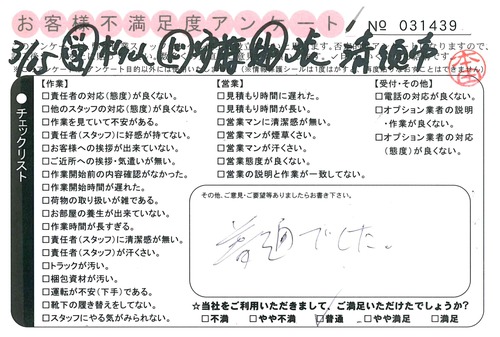 お客様不満足度アンケート
No 031439
【作業】
□責任者の対応(態度)が良くない。
□他のスタッフの対応(態度)が良くない。
□作業を見ていて不安がある。
□責任者(スタッフ)に好感が持てない。
□お客様への挨拶が出来ていない。
□ご近所への挨拶・気遣いが無い。
□作業開始前の内容確認がなかった。
□作業開始時間が遅れた。
□荷物の取り扱いが雑である。
□お部屋の養生が出来ていない。
□作業時間が長すぎる。
□責任者(スタッフ)に清潔感が無い。
□責任者(スタッフ)が汗くさい。
□トラックが汚い。
□梱包資材が汚い。
□運転が不安(下手)である。
□靴下の履き替えをしてない。
□スタッフにやる気がみられない。
【営業】
□見積もり時間に遅れた。
□見積もり時間が長い。
□営業マンに清潔感が無い。
□営業マンが煙草くさい。
□営業マンが汗くさい。
□営業態度が良くない。
□営業の説明と作業が一致してない。
【受付・その他】
□電話の対応が良くない。
□オプション業者の説明
・作業が良くない。
□オプション業者の対応
(態度)が良くない。
チェックリスト
その他、ご意見・ご要望等ありましたらお書き下さい。
普通でした。
☆当社をご利用いただきまして、ご満足いただけたでしょうか?
□不満 □やや不満 □普通 □やや満足 □満足